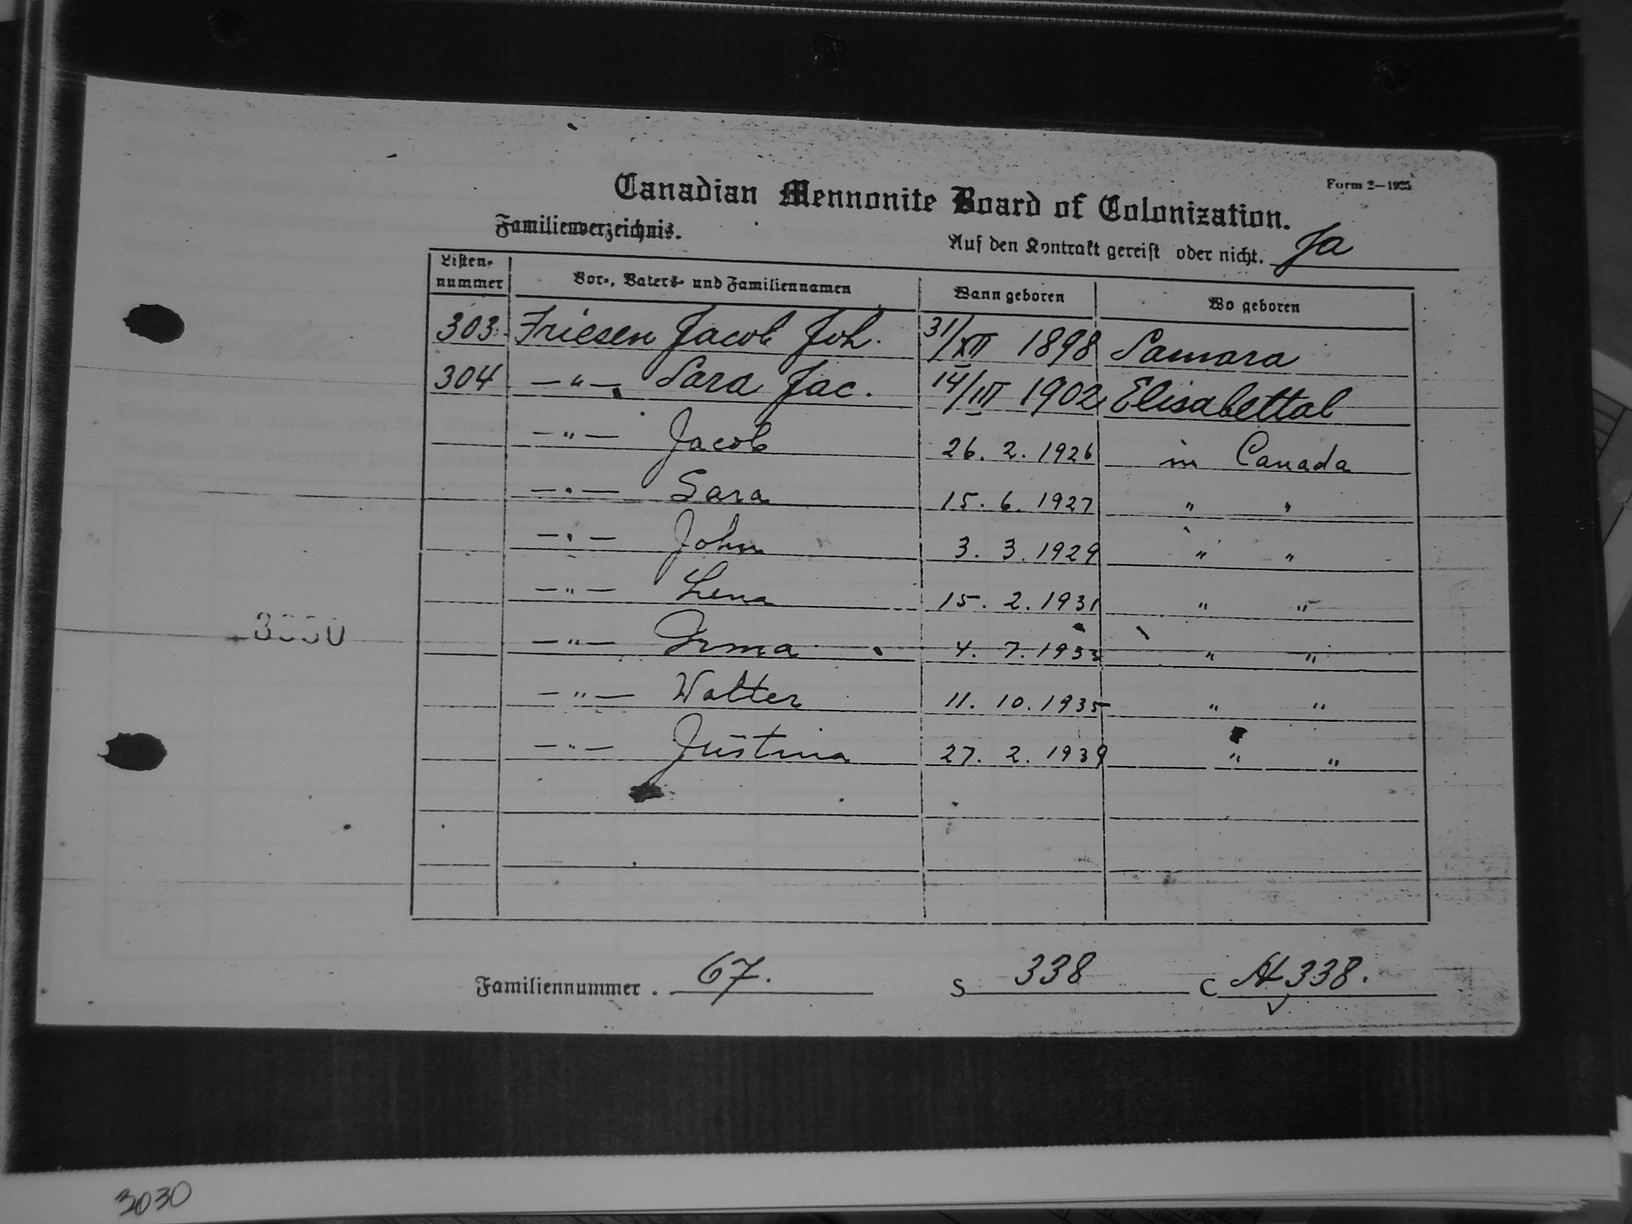 Form 2—1925
Canadian Mennonite Board of Colonization.
Familienverzeichnis.
Auf den Kontrakt gereist oder nicht. Ja
Listen-nummer Vor-, Vaters- und Familiennamen Wann geboren Wo geboren
303 Friesen Jacob Joh. 31/XII 1898 Samara
304 —"— Sara Jac. 14/III 1902 Elisabettal
—"— Jacob 26. 2. 1926 in Canada
—"— Sara 15. 6. 1927 " "
—"— John 3. 3. 1929 " "
—"— Lena 15. 2. 1931 " "
3030
—"— Irma 4. 7. 1933 " "
—"— Walter 11. 10. 1935 " "
—"— Justina 27. 2. 1939 " "
Familiennummer . 67. S 338 C At 338.
3030